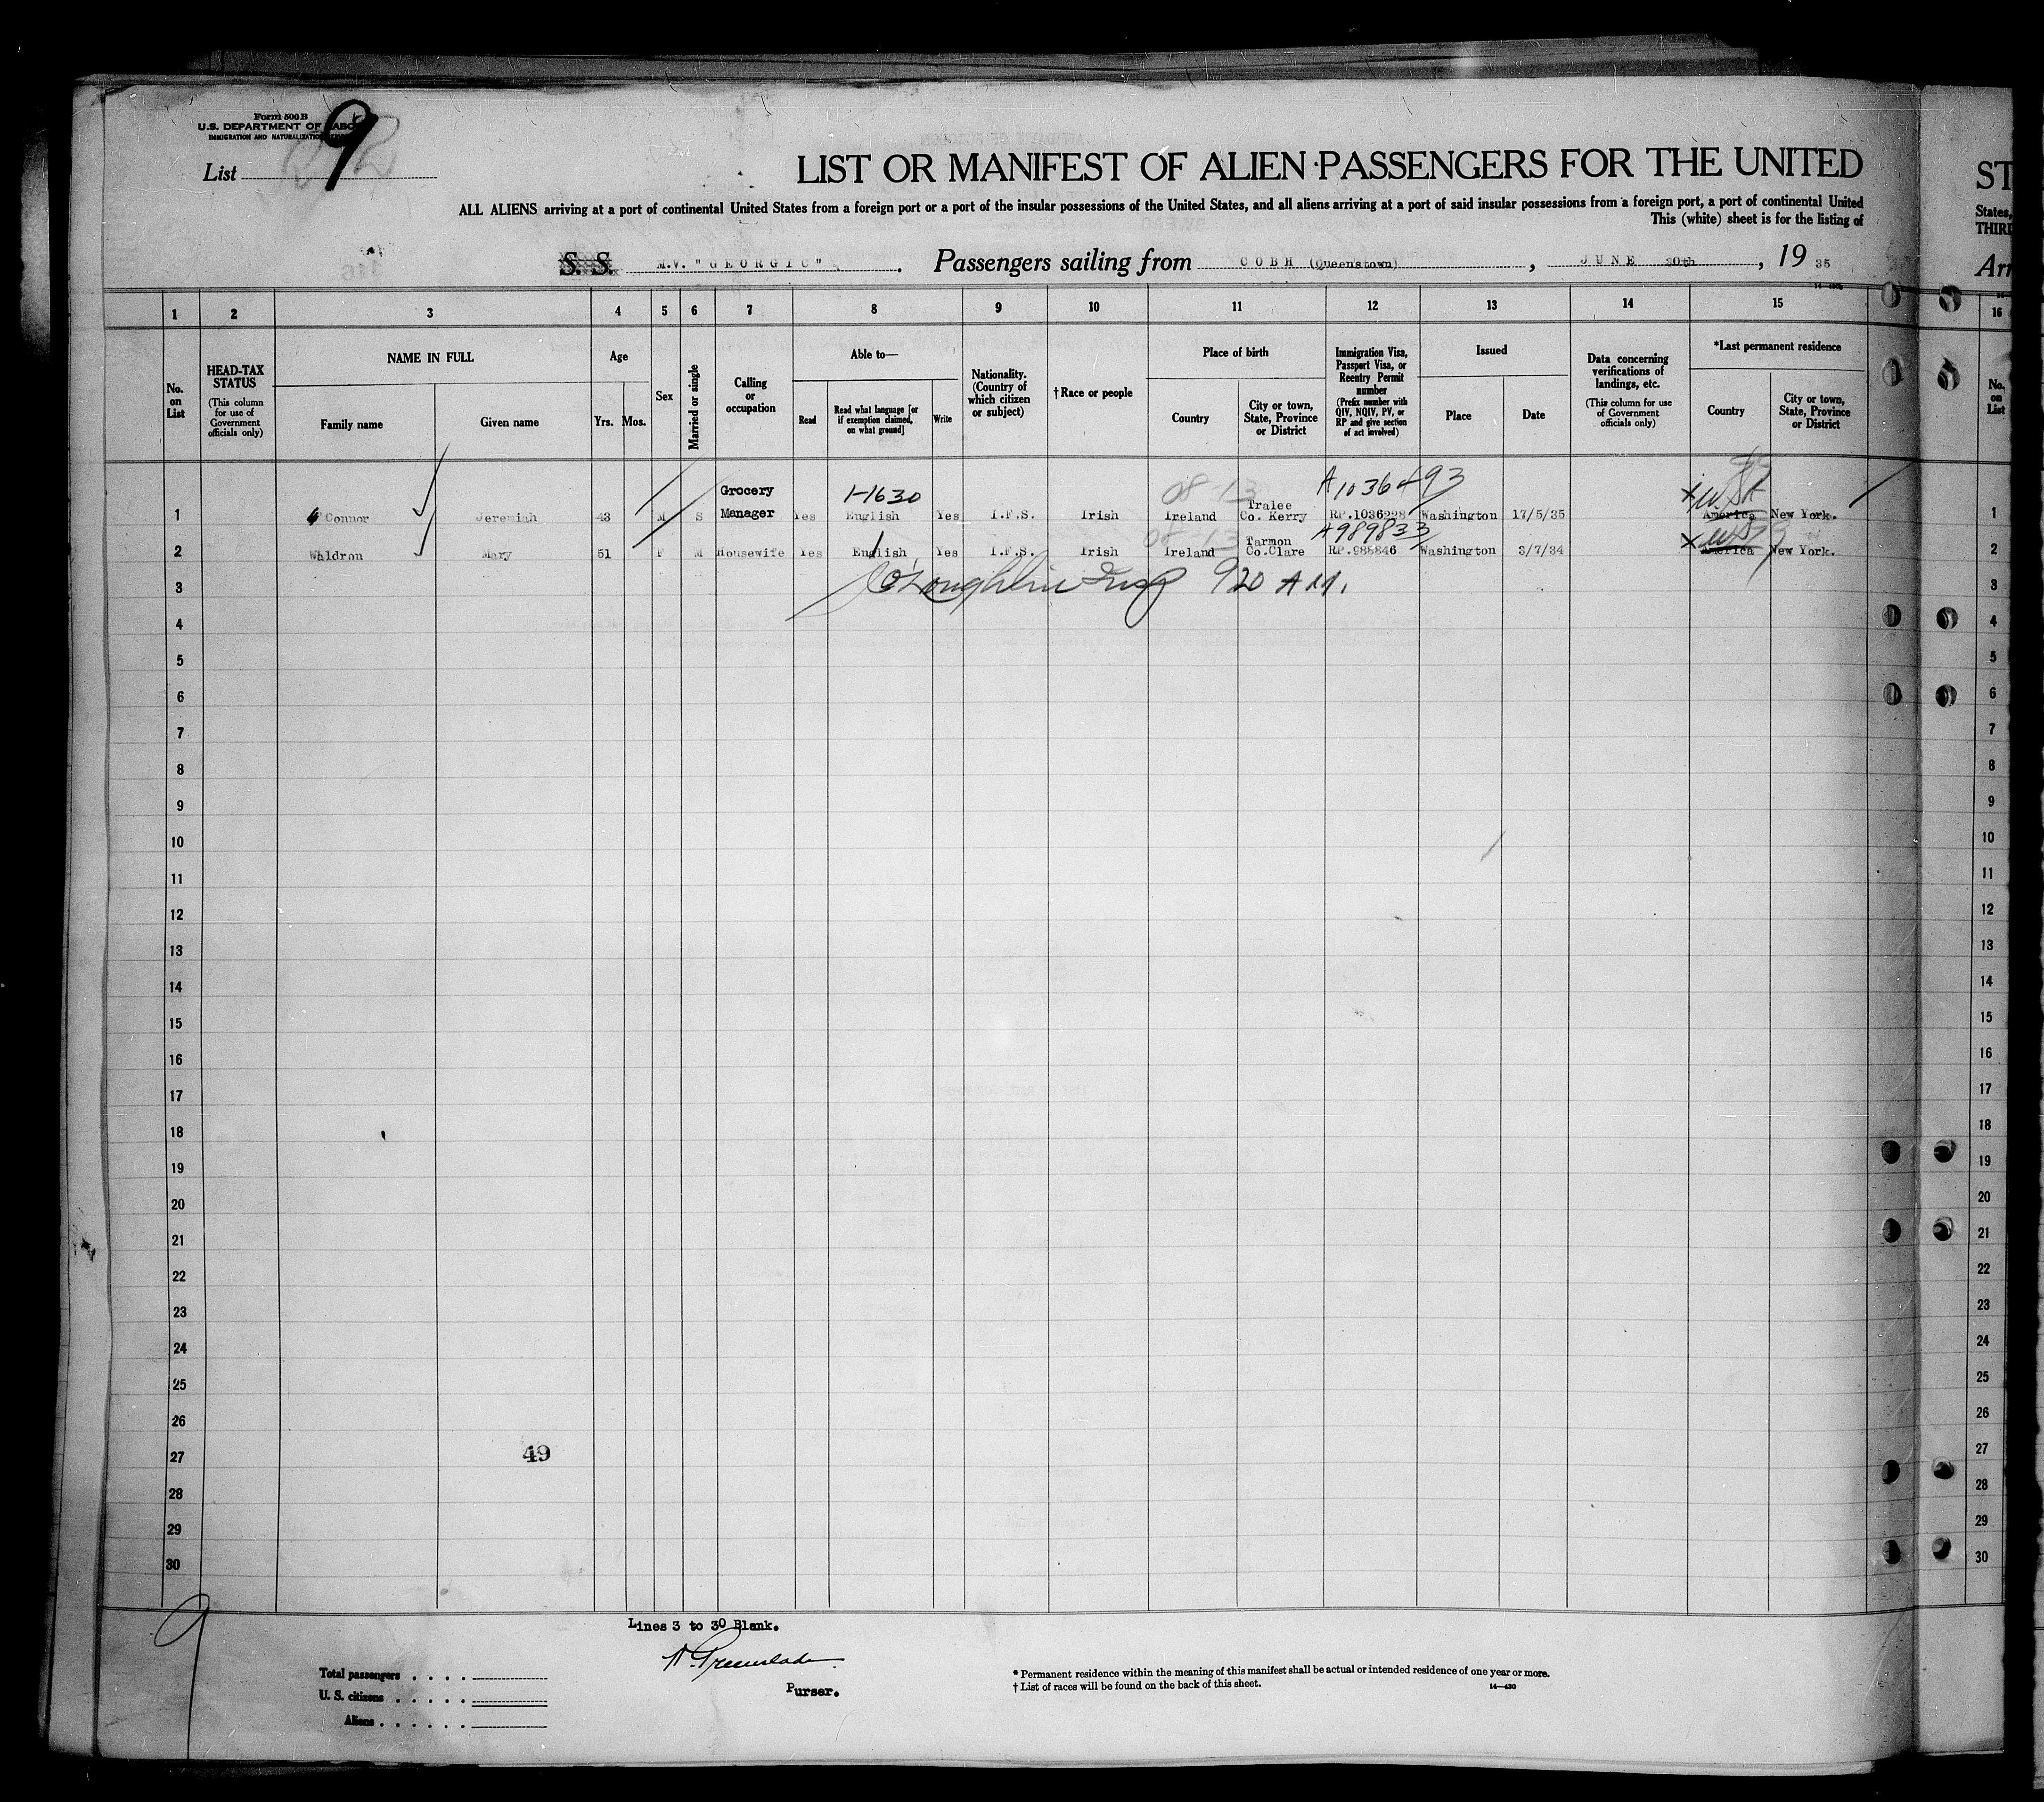 Form 500 B
U.S. DEPARTMENT OF LABOR
IMMIGRATION AND NATURALIZATION
List 9
LIST OR MANIFEST OF ALIEN PASSENGERS FOR THE UNITED
ST
ALL ALIENS arriving at a port of continental United States from a foreign port or a port of the insular possessions of the United States, and all aliens arriving at a port of said insular possessions from a foreign port, a port of continental United
States,
This (white) sheet is for the listing of
THIRD
S. S. M.V. "GEORGIC" . Passengers sailing from COBH (Queenstown) , JUNE 30th , 19 35
Arr
1 2 3 4 5 6 7 8 9 10 11 12 13 14 15 16
No. on List
HEAD-TAX STATUS
(This column for use of Government officials only)
NAME IN FULL
Family name
Given name
Age
Yrs. Mos.
Sex
Married or single
Calling or occupation
Able to—
Read
Read what language [or if exemption claimed, on what ground]
Write
Nationality. (Country of which citizen or subject)
† Race or people
Place of birth
Country
City or town, State, Province or District
Immigration Visa, Passport Visa, or Reentry Permit number
(Prefix number with QIV, NQIV, PV, or RP and give section of act involved)
Issued
Place
Date
Data concerning verifications of landings, etc.
(This column for use of Government officials only)
*Last permanent residence
Country
City or town, State, Province or District
No. on List
Grocery 1-1630 08-13 Tralee A1036493
1 Connor Jeremiah 43 M S Manager Yes English Yes I.F.S. Irish Ireland Co. Kerry RP.1036228 Washington 17/5/35 America New York. 1
08-13 Tarmon A989833
2 Waldron Mary 51 F M Housewife Yes English Yes I.F.S. Irish Ireland Co.Clare RP.988846 Washington 3/7/34 America New York. 2
3 O'Loughlin Insp 920 AM. 3
4 4
5 5
6 6
7 7
8 8
9 9
10 10
11 11
12 12
13 13
14 14
15 15
16 16
17 17
18 18
19 19
20 20
21 21
22 22
23 23
24 24
25 25
26 26
27 49 27
28 28
29 29
30 30
9
Lines 3 to 30 Blank.
Purser.
Total passengers . . . .
U. S. citizens . . . . .
Aliens . . . . . .
* Permanent residence within the meaning of this manifest shall be actual or intended residence of one year or more.
† List of races will be found on the back of this sheet.
14—430